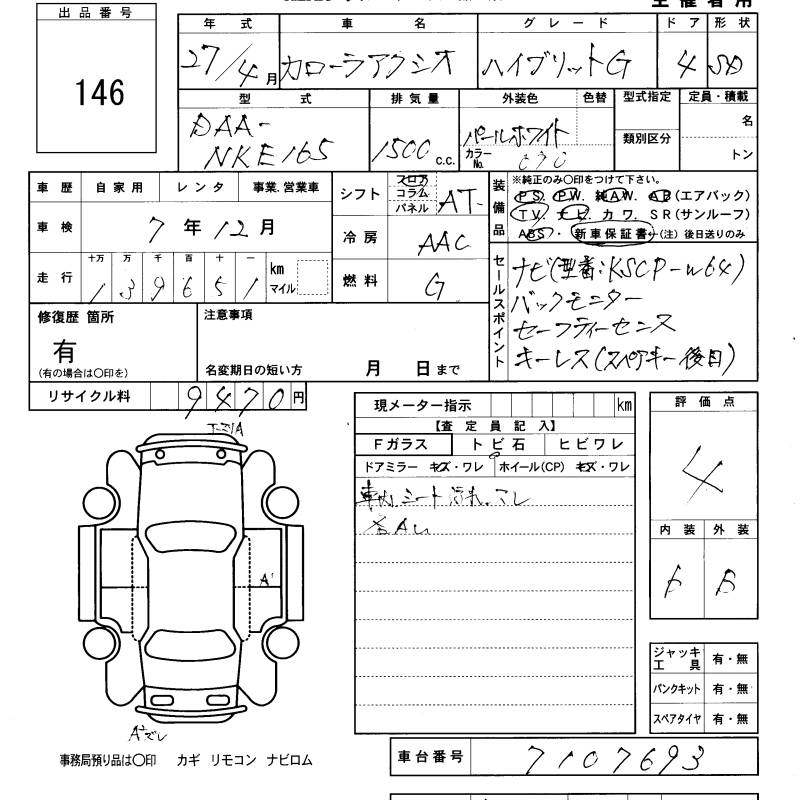 出品番号
146
年 式 車 名 グ レ ー ド ド ア 形 状
27/4月 カローラアクシオ ハイブリットG 4 SD
型 式 排 気 量 外装色 色替 型式指定 定員・積載
DAA-
NKE165 1500 c.c. パールホワイト
カラーNo. 070 類別区分 名
トン
車 歴 自 家 用 レ ン タ 事業.営業車
車 検 7 年 12 月
十万 万 千 百 十 一
走 行 1 3 9 6 5 1 km マイル
シフト フロア コラム パネル AT-
冷 房 AAC
燃 料 G
装備品 ※純正のみ〇印をつけて下さい。
PS. PW. 純AW. AB(エアバック)
TV ナビ カ ワ. SR(サンルーフ)
ABS. 新車保証書←(注) 後日送りのみ
セールスポイント
ナビ(型番:KSCP-W64)
バックモニター
セーフティーセンス
キーレス(スペアキー後日)
修復歴 箇所
有
(有の場合は〇印を)
注意事項
名変期日の短い方 月 日まで
リサイクル料 9470円
現メーター指示 km
【査 定 員 記 入】
Fガラス ト ビ 石 ヒ ビ ワ レ
ドアミラー キズ・ワレ ホイール(CP) キズ・ワレ
車内.シート汚れ.スレ
各AU
評 価 点
4
内 装 外 装
B
A'
A²ズレ
ジャッキ 工 具 有・無
パンクキット 有・無
スペアタイヤ 有・無
事務局預り品は〇印 カギ リモコン ナビロム
車台番号 7107693